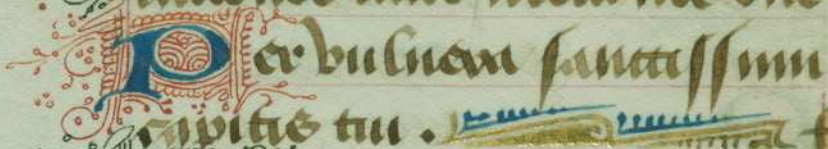 Per vulnera sanctissimi
capitis tui .